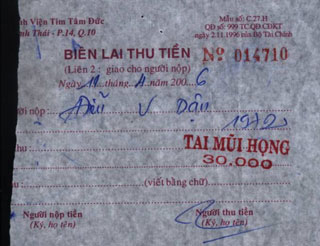 nh Viện Tim Tâm Đức
nh Thái - P.14, Q.10
Mẫu số: C.27.H
QĐ số: 999 TC.QĐ.CĐKT
ngày 2.11.1996 của Bộ Tài Chính
BIÊN LAI THU TIỀN
Nº 014710
(Liên 2 : giao cho người nộp)
Ngày 11 tháng 4 năm 2006
ười nộp Dậu
1972
hu
TAI MŨI HỌNG
30.000
(viết bằng chữ)
Người nộp tiền
(Ký, họ tên)
Người thu tiền
(Ký, họ tên)